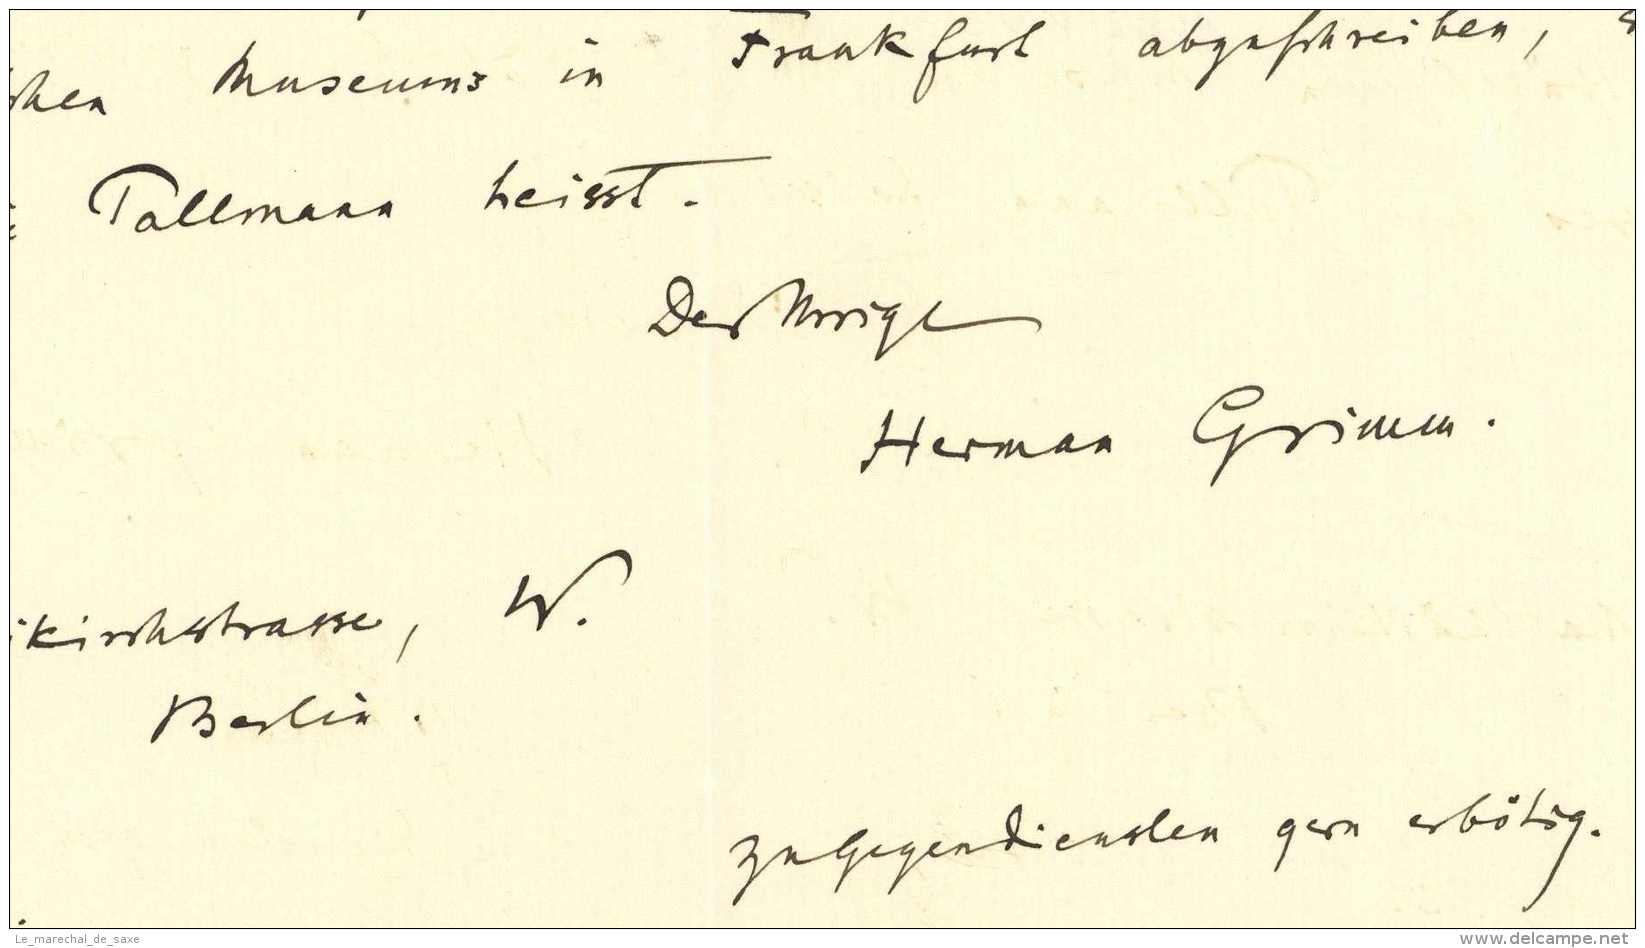 chen Museums in Frankfurt abzuschreiben,
Tallmann heisst.
Der Ihrige
Herman Grimm.
ikirchstrasse, W.
Berlin.
zu Gegendiensten gern erbötig.
Le_marechal_de_saxe
delcampe.net